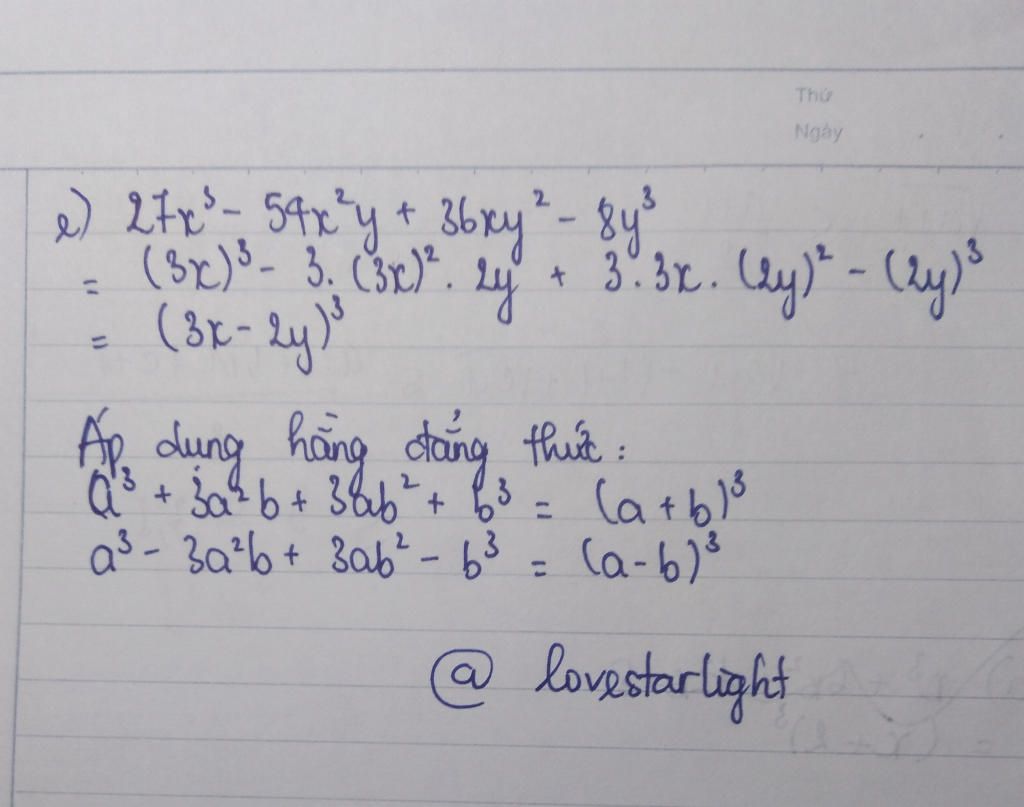 Thứ
Ngày
e) 27x³ - 54x²y + 36xy² - 8y³
= (3x)³ - 3.(3x)². 2y + 3.3x.(2y)² - (2y)³
= (3x - 2y)³
Áp dụng hằng đẳng thức:
a³ + 3a²b + 3ab² + b³ = (a + b)³
a³ - 3a²b + 3ab² - b³ = (a - b)³
@ lovestarlight